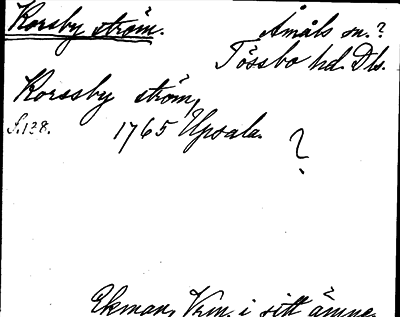 Korsby ström. Åmåls sn.?
Tössbo hd. Dls.
Korssby ström,
S.128. 1765 Upsala. ?
Ekman, Vrm. i sitt ämne